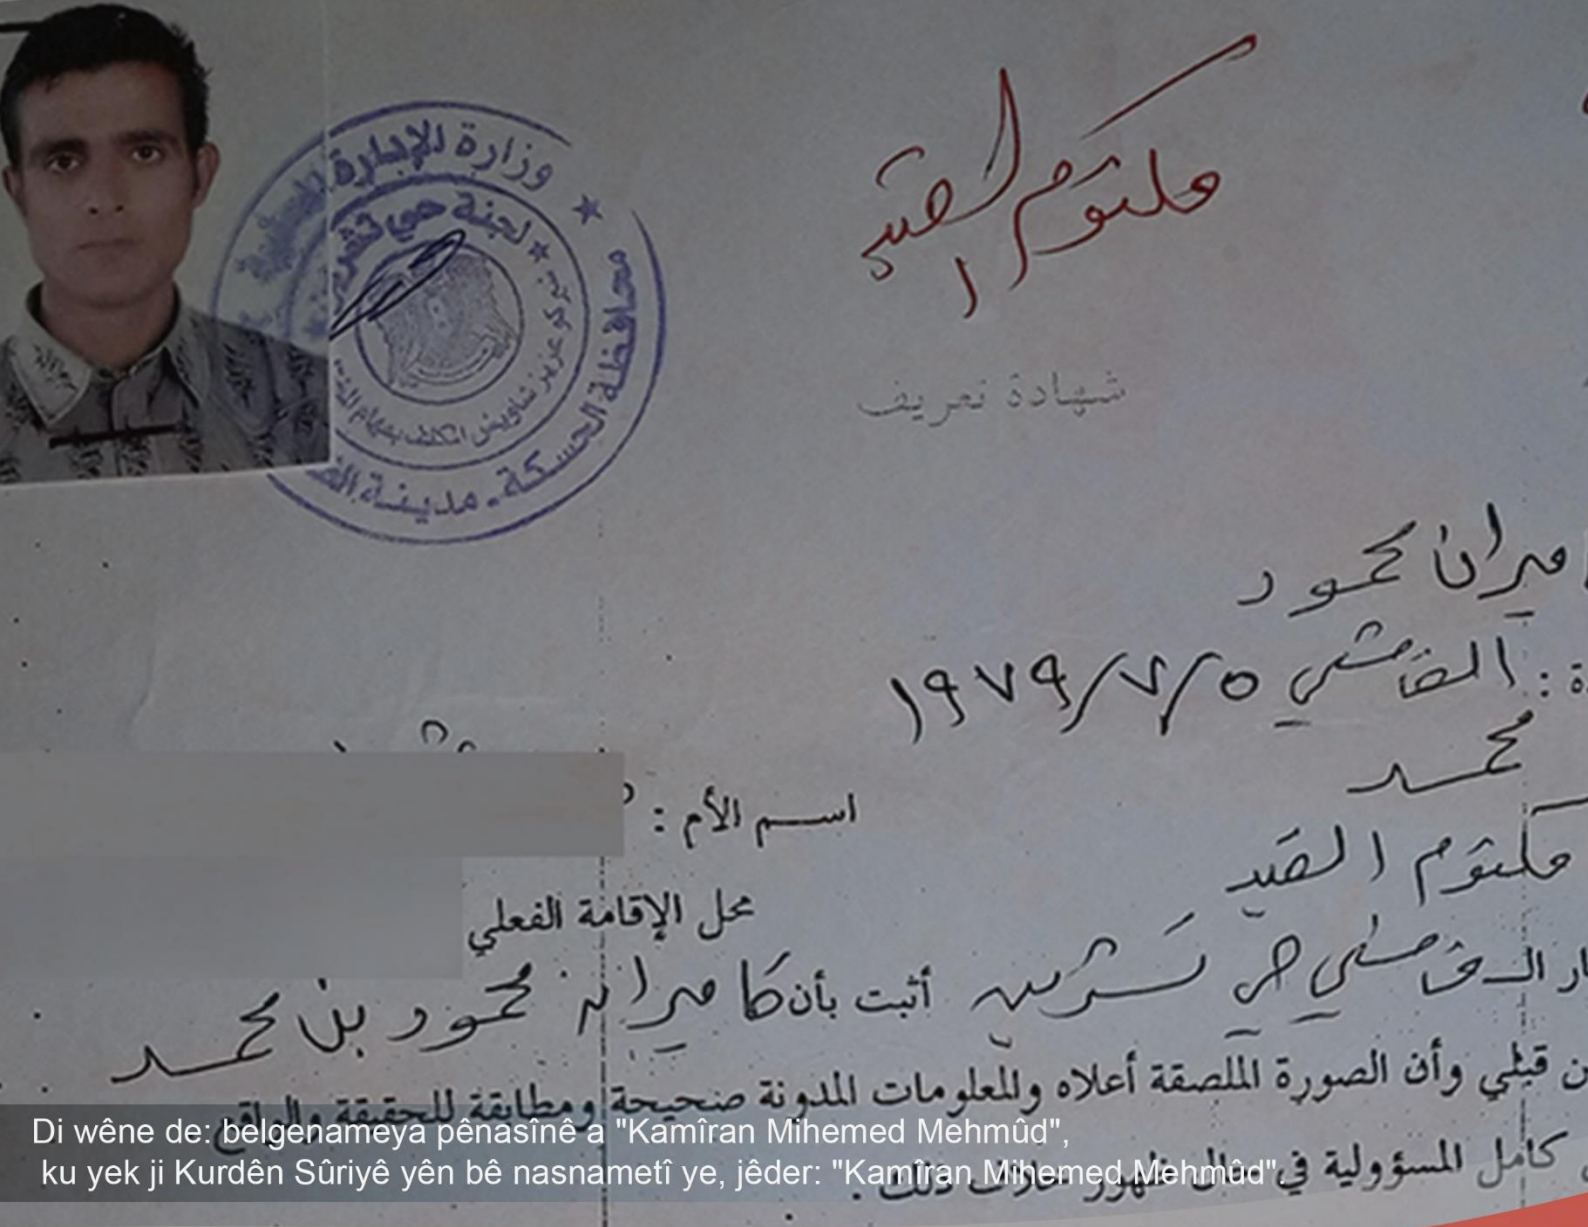 وزارة الإدارة المحلية
لجنة حي تشرين
محافظة الحسكة - مدينة
عزيز شاويش المكلف بمهام
مكتوم القيد
شهادة تعريف
ميران محمود
ة : القامشلي ١٩٧٩/٧/٥
محمد
اسم الأم :
مكتوم القيد
محل الإقامة الفعلي
القامشلي حي تشرين أثبت بأن كاميران محمود بن محمد
ن قبلي وأن الصورة الملصقة أعلاه والمعلومات المدونة صحيحة ومطابقة للحقيقة والواقع
كامل المسؤولية في حال ظهور خلاف ذلك .
Di wêne de: belgenameya pênasînê a "Kamîran Mihemed Mehmûd",
ku yek ji Kurdên Sûriyê yên bê nasnametî ye, jêder: "Kamîran Mihemed Mehmûd".